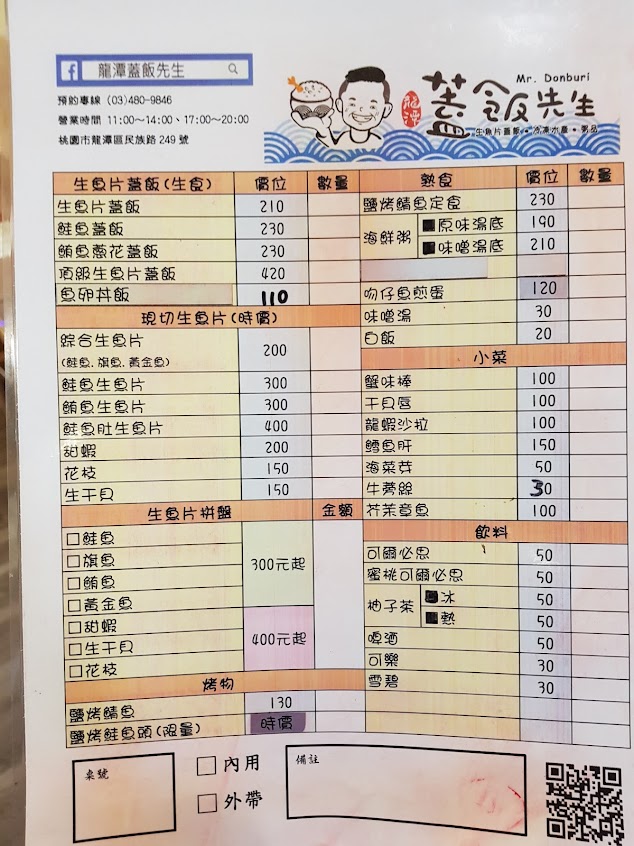 龍潭蓋飯先生
預約專線 (03)480-9846
營業時間 11:00～14:00、17:00～20:00
桃園市龍潭區民族路 249 號
Mr. Donburi
龍潭
蓋飯先生
生魚片蓋飯・冷凍水產・粥品
生魚片蓋飯(生食) 價位 數量
生魚片蓋飯 210
鮭魚蓋飯 230
鮪魚蔥花蓋飯 230
頂級生魚片蓋飯 420
魚卵丼飯 110
現切生魚片(時價)
綜合生魚片 200
(鮭魚.旗魚.黃金魚)
鮭魚生魚片 300
鮪魚生魚片 300
鮭魚肚生魚片 400
甜蝦 200
花枝 150
生干貝 150
生魚片拼盤 金額
鮭魚
旗魚
300元起
鮪魚
黃金魚
甜蝦
400元起
生干貝
花枝
烤物
鹽烤鯖魚 130
鹽烤鮭魚頭(限量) 時價
熟食 價位 數量
鹽烤鯖魚定食 230
海鮮粥
原味湯底 190
味噌湯底 210
吻仔魚煎蛋 120
味噌湯 30
白飯 20
小菜
蟹味棒 100
干貝唇 100
龍蝦沙拉 100
鱈魚肝 150
海菜芽 50
牛蒡絲 30
芥茉章魚 100
飲料
可爾必思 50
蜜桃可爾必思 50
柚子茶
冰 50
熱 50
啤酒 50
可樂 30
雪碧 30
桌號
內用
外帶
備註